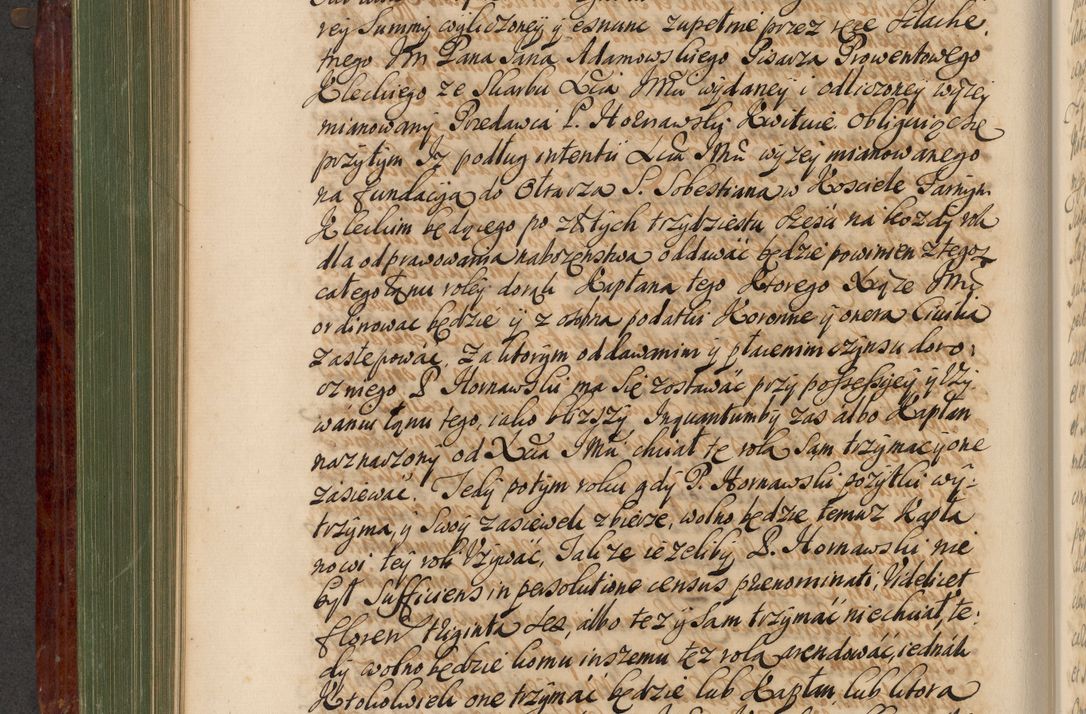 rey Summy wyliczoney y esnune zupełnie przez ręce Szlache,
tnego Jm Pana Jana Adamowskiego Pisarza Prowentowego
Kleckiego ze Skarbu Xcia JMci wydaney i odliczoney wyzey
mianowany Przedawca P. Hornawsky Kwituie. Obliguiąc się
przytym Iz podług intentii Xcia JMci wyzej mianowanego
na fundacyią do Ołtarza S. Sebestiana w Kosciele Farnym
Kleckim będącego po złotych trzydziestu sześć na kozdy rok
dla odprawowania nabozenstwa oddawać będzie powinien z tego
całego łanu roley do rąk Kapłana tego Ktorego Xiąze JMc
ordinowac będzie y z osobna podatki Koronne y onera Civilia
zastępować, Za ktorym oddawanim y płacenim czynsu doro,
cznego P. Hornawski ma się zostawać przy possessyey y Vzy
wániu łanu tego, iako blizszy Inquantumby zas albo Kapłan
naznaczony od Xcia JMci chciał tę rolą Sam trzymac y one
zasiewać. Tedy potym roku gdy P. Hornawski pozytki wy-
trzyma, y Swoy zasiewek zbierze, wolno będzie temuz Kapła
nowi tey roli Vzywać, Takze iezeliby P. Hornawski nie
był Sufficiens in persolutione census prenominati, Videlicet
floren triginta sex, albo tez y Sam trzymać niechciał, te,
dy wolno będzie komu inszemu tęz rolą arendować, iednák
Ktokolwiek one trzymać będzie lub Kapłan, lub ktora